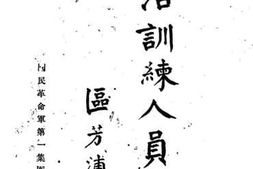 治訓練人員
區芳浦
國民革命軍第一集團